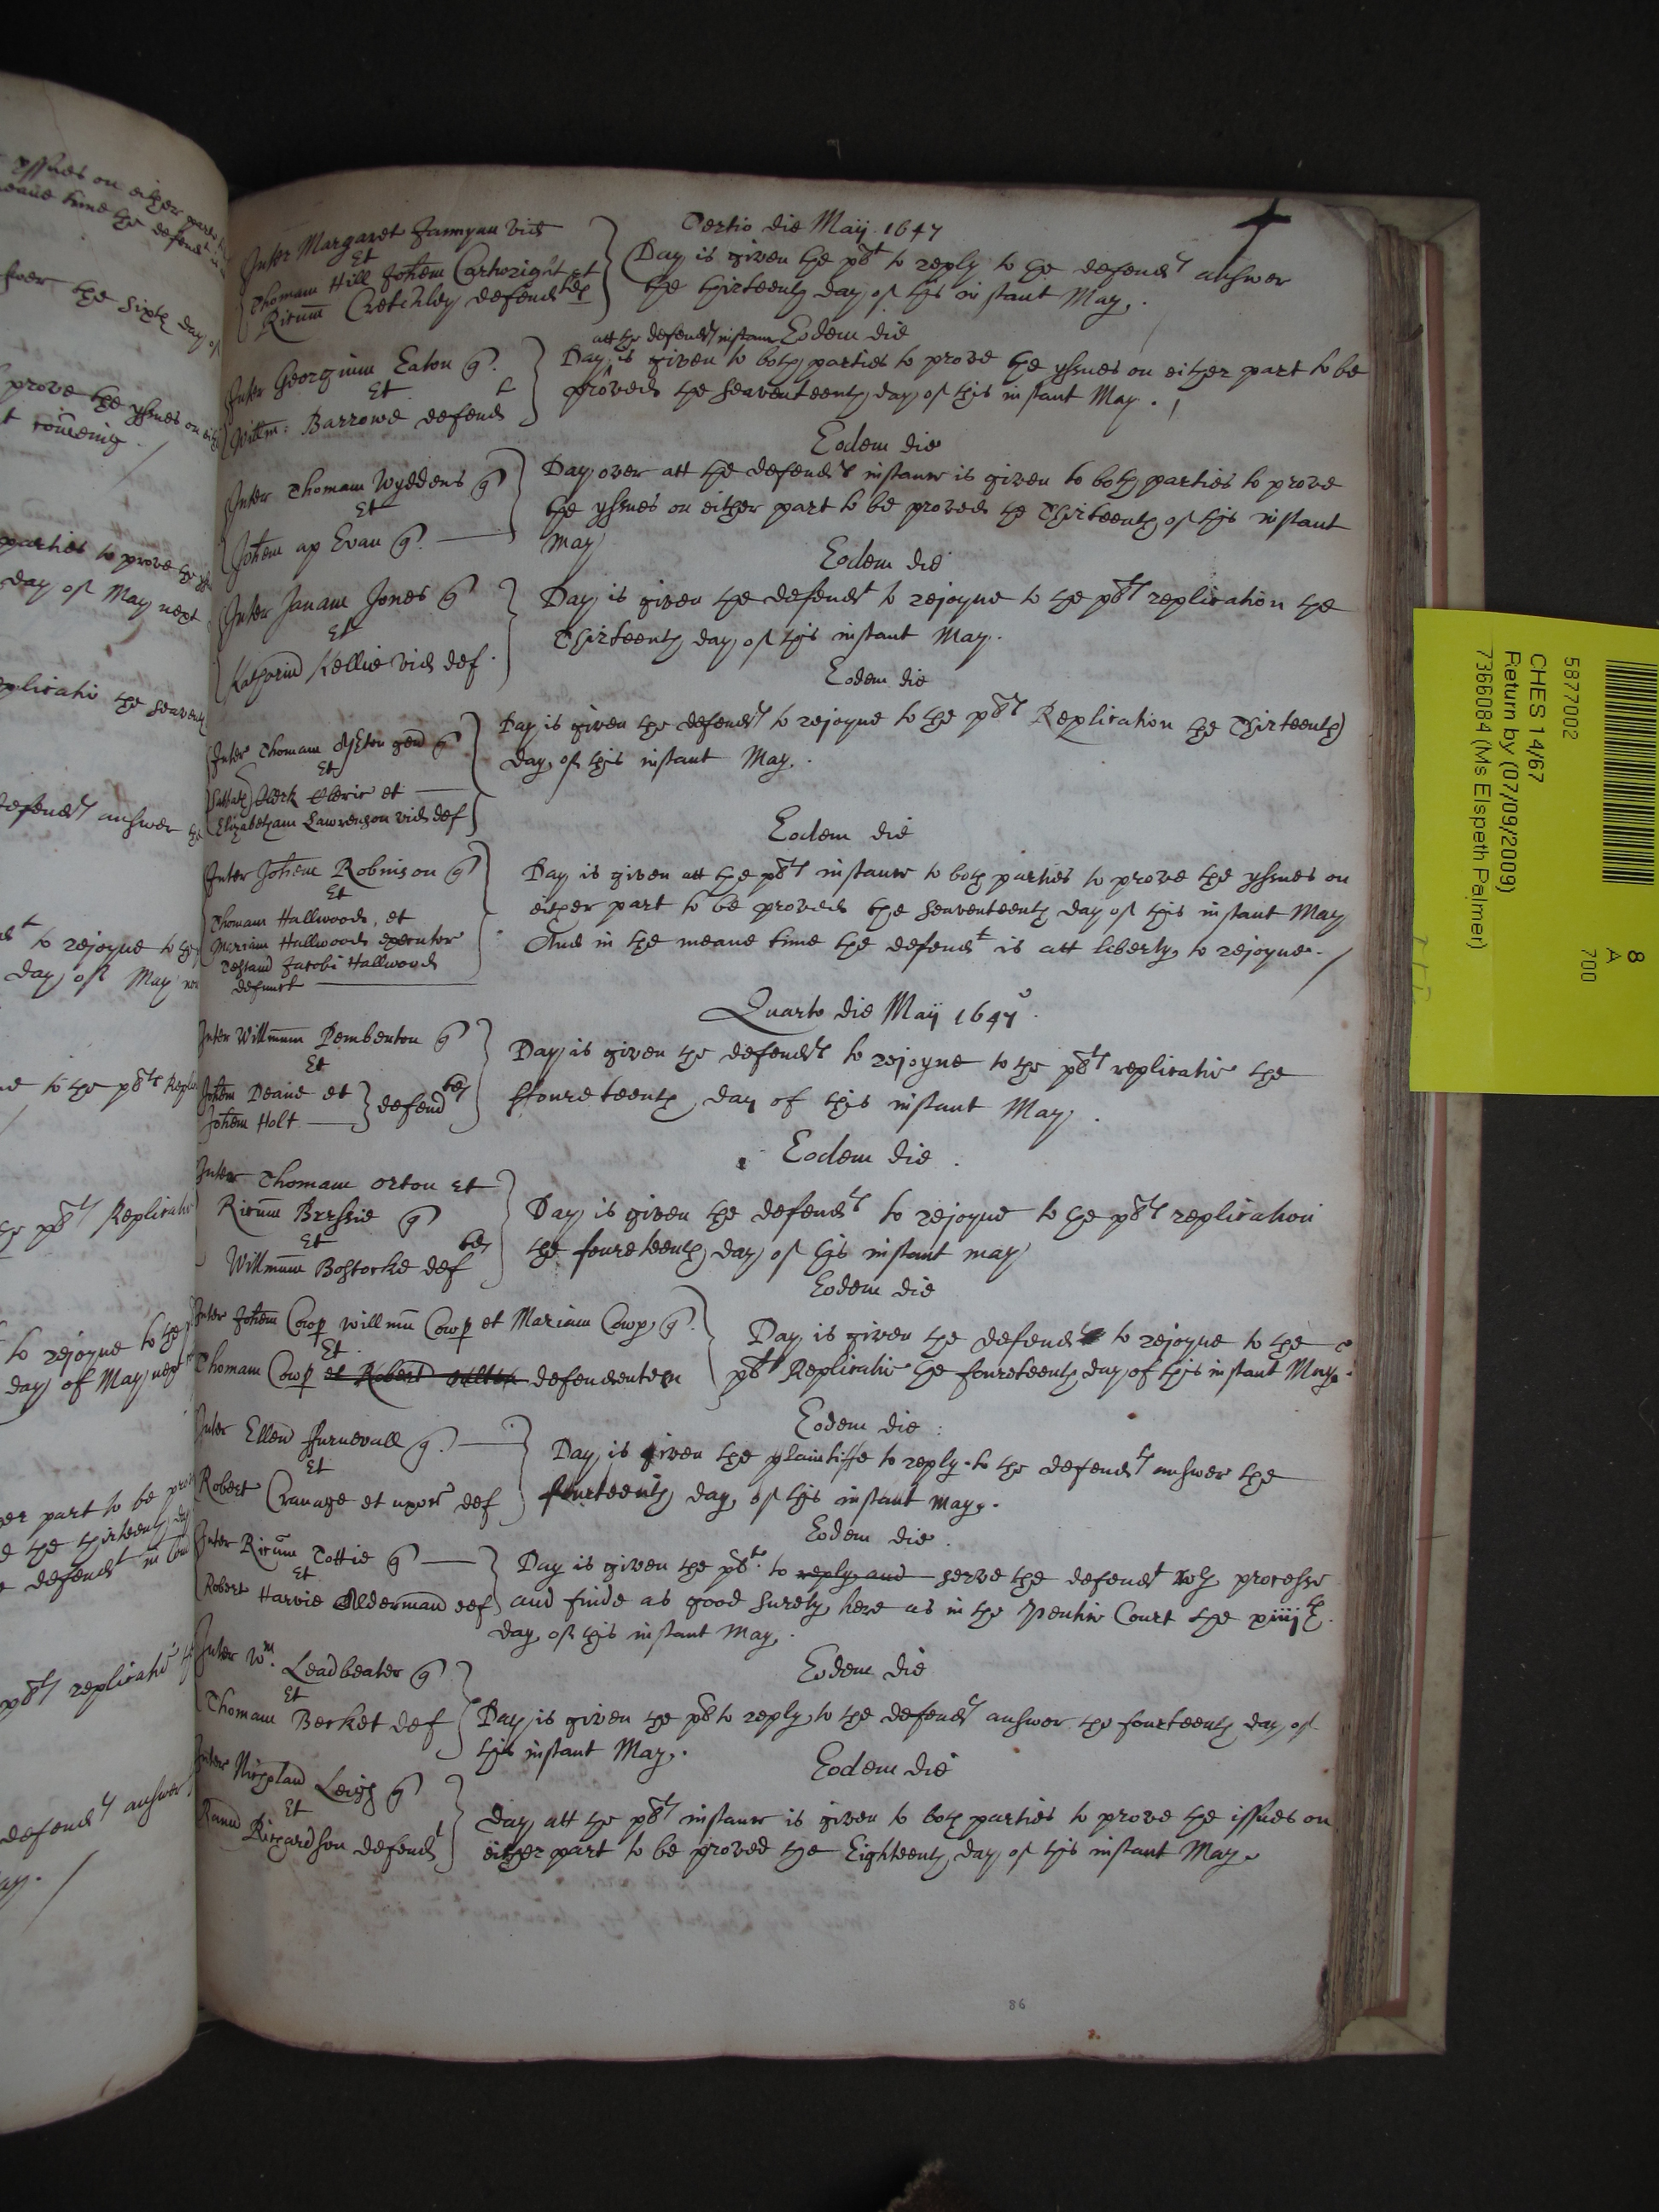 yssues on either parte
meane time the defendt
swer the sixth day of
prove the yssues on eith
t comeing.
parties to prove the
day of May next
eplicatio the seaventh
defendts answer the
to rejoyne to the
day of May next
ne to the pltts Replic
the pltts Replicatio
to rejoyne to the
day of May next
er part to be prov
the thirteenth day
defendt in
pltts replicatio
defendts answer
ay.
Tertio die Maij 1647
Inter Margaret Jannyon vid
Et
Thomam Hill Johem Cartwright et
Ricum Cretchley defendtes
Day is given the pltt to reply to the defendts answer
the thirteenth day of this instant May.
Eodem die
Inter Georgium Eaton q
Et
Willm: Barrowe defendt
att the defendts instance
Day is given to both parties to prove the yssues on either part to be
proved the seaventeenth day of this instant May.
Eodem die
Inter Thomam Wyddens q
Et
Johem ap Evan q.
Day over att the defendts instance is given to both parties to prove
the yssues on either part to be proved the Thirteenth of this instant
May
Eodem die
Inter Janam Jones q
Et
Katherin Kellie vid def.
Day is given the defendt to rejoyne to the pltts replication the
Thirteenth day of this instant May.
Eodem die
Inter Thomam Ashton gen q
Et
Clerk Cleric et
Elizabetham Lawrenson vid def
Day is given the defendts to rejoyne to the pltts Replication the Thirteenth
day of this instant May.
Eodem die
Inter Johem Robinson q
Et
Thomam Hallwood, et
Mariam Hallwood executor
Testam Jacobi Hallwood
defunct
Day is given att the pltts instance to both parties to prove the yssues on
either part to be proved the seaventeenth day of this instant May
And in the meane time the defendt is att liberty to rejoyne.
Quarto die Maij 1647
Inter Willmum Pemberton q
Et
Johem Deane et
Johem Holt
defendtes
Day is given the defendts to rejoyne to the pltts replicatio the
ffoureteenth day of this instant May.
Eodem die.
Inter Thomam Orton et
Ricum Bressie q
Et
Willmum Bostocke deftes
Day is given the defendts to rejoyne to the pltts replication
the foureteenth day of this instant may
Eodem die
Inter Johem Cowp willmu Cowp et Mariam Cowp, q.
Et
Thomam Cowp et Robert defendentem
Day is given the defendt to rejoyne to the
pltts Replicatio the foureteenth day of this instant May.
Eodem die:
Inter Ellen Furnevall q.
Et
Robert Cranage et uxor def
Day is given the plaintiffe to reply to the defendts answer the
fourteenth day of this instant may.
Eodem die.
Inter Ricum Tottie q
Et
Robert Harvie Alderman def
Day is given the pltt. to reply and serve the defendt wth processe
and finde as good surety here as in the Pentice Court the xiiijth.
day of this instant May.
Eodem die
Inter Wm. Leadbeater q
Et
Thomam Berket def
Day is given the plt to reply to the defendts answer the fourteenth day of
this instant May.
Eodem die
Inter Leigh q
Et
Richardson defendt
Day att the pltts instance is given to both parties to prove the issues on
either part to be proved the Eighteenth day of this instant May.
86
8
A
700
5877002
CHES 14/67
Return by (07/09/2009)
7366084 (Ms Elspeth Palmer)